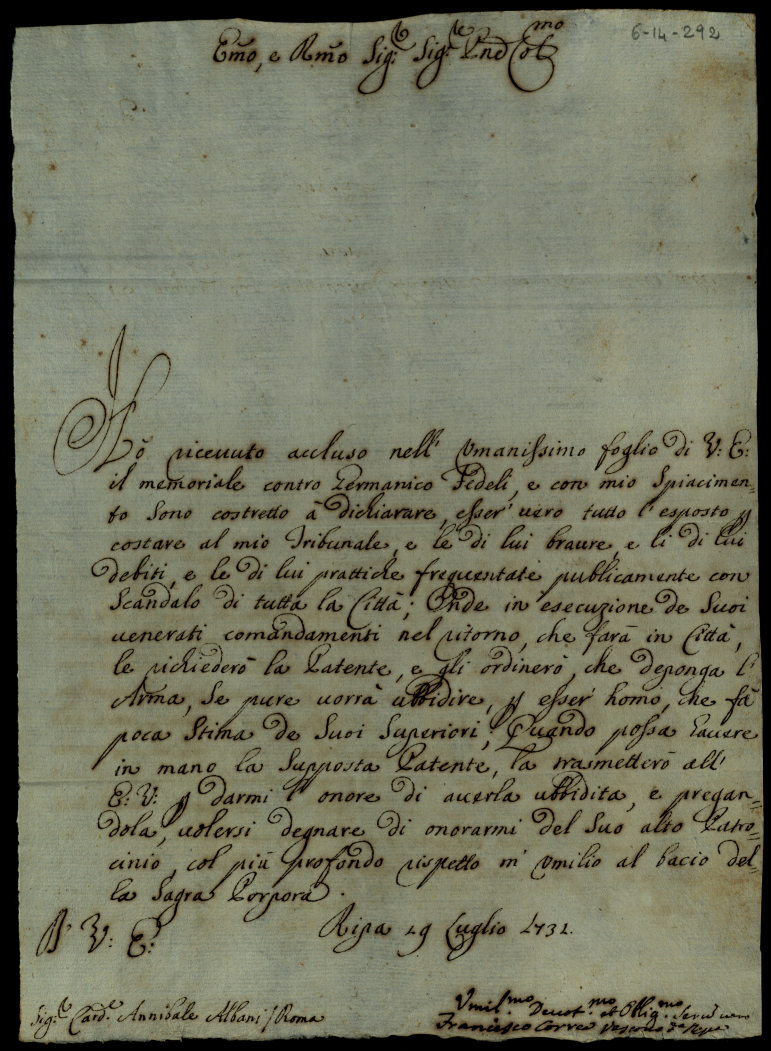 6-14-292
Em̃o, e Rm̃o Sig.r Sig.re Pne Col.mo
Hò ricevuto accluso nell' Vmanissimo foglio di V: E:
il memoriale contro Germanico Fedeli, e con mio spiacimen=
to sono costretto à dichiarare, esser' vero tutto l'esposto p
costare al mio Tribunale, e le di lui braure, e li di lui
debiti, e le di lui prattiche frequentate publicamente con
scandalo di tutta la Città; Onde in esecuzione de Suoi
venerati comandamenti nel ritorno, che farà in Città,
le richiederò la Patente, e gli ordinerò, che deponga l'
Arma, se pure vorrà ubbidire, p esser' homo, che fà
poca stima de Suoi Superiori; Quando possa havere
in mano la supposta Patente, la trasmetterò all'
E: V: p darmi l'onore di averla ubbidita, e pregan=
dola, volersi degnare di onorarmi del Suo alto Patro=
cinio, col più profondo rispetto m' umilio al bacio del=
la Sagra Porpora.
D' V: E:
Ripa 19 Luglio 1731.
Sig.r Card.e Annibale Albani / Roma
Vmil.mo Devot.mo et Oblig.mo Ser.re vero
Francesco Correa Vescovo